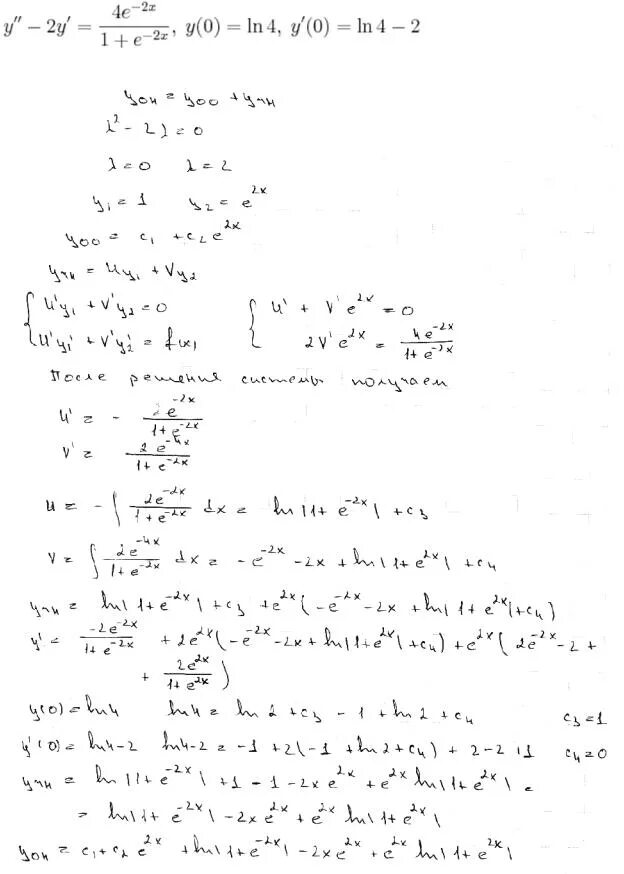 y'' − 2y' = 4e^{−2x} / (1 + e^{−2x}), y(0) = ln 4, y'(0) = ln 4 − 2
yон = yоо + yчн
λ² − 2λ = 0
λ = 0   λ = 2
y₁ = 1   y₂ = e^{2x}
yоо = c₁ + c₂e^{2x}
yчн = Uy₁ + Vy₂
{ U'y₁ + V'y₂ = 0   { U' + V'e^{2x} = 0
{ U'y₁' + V'y₂' = f(x)   { 2V'e^{2x} = 4e^{−2x} / (1 + e^{−2x})
После решения системы получаем
U' = − 2e^{−2x} / (1 + e^{−2x})
V' = 2e^{−4x} / (1 + e^{−2x})
U = −∫ 2e^{−2x} / (1 + e^{−2x}) dx = ln|1 + e^{−2x}| + c₃
V = ∫ 2e^{−4x} / (1 + e^{−2x}) dx = −e^{−2x} − 2x + ln|1 + e^{2x}| + c₄
yчн = ln|1 + e^{−2x}| + c₃ + e^{2x}(−e^{−2x} − 2x + ln|1 + e^{2x}| + c₄)
y' = −2e^{−2x} / (1 + e^{−2x}) + 2e^{2x}(−e^{−2x} − 2x + ln|1 + e^{2x}| + c₄) + e^{2x}(2e^{−2x} − 2 +
+ 2e^{2x} / (1 + e^{2x}))
y(0) = ln4   ln4 = ln2 + c₃ − 1 + ln2 + c₄   c₃ = 1
y'(0) = ln4 − 2   ln4 − 2 = −1 + 2(−1 + ln2 + c₄) + 2 − 2 + 1   c₄ = 0
yчн = ln|1 + e^{−2x}| + 1 − 1 − 2xe^{2x} + e^{2x} ln|1 + e^{2x}| =
= ln|1 + e^{−2x}| − 2xe^{2x} + e^{2x} ln|1 + e^{2x}|
yон = c₁ + c₂e^{2x} + ln|1 + e^{−2x}| − 2xe^{2x} + e^{2x} ln|1 + e^{2x}|